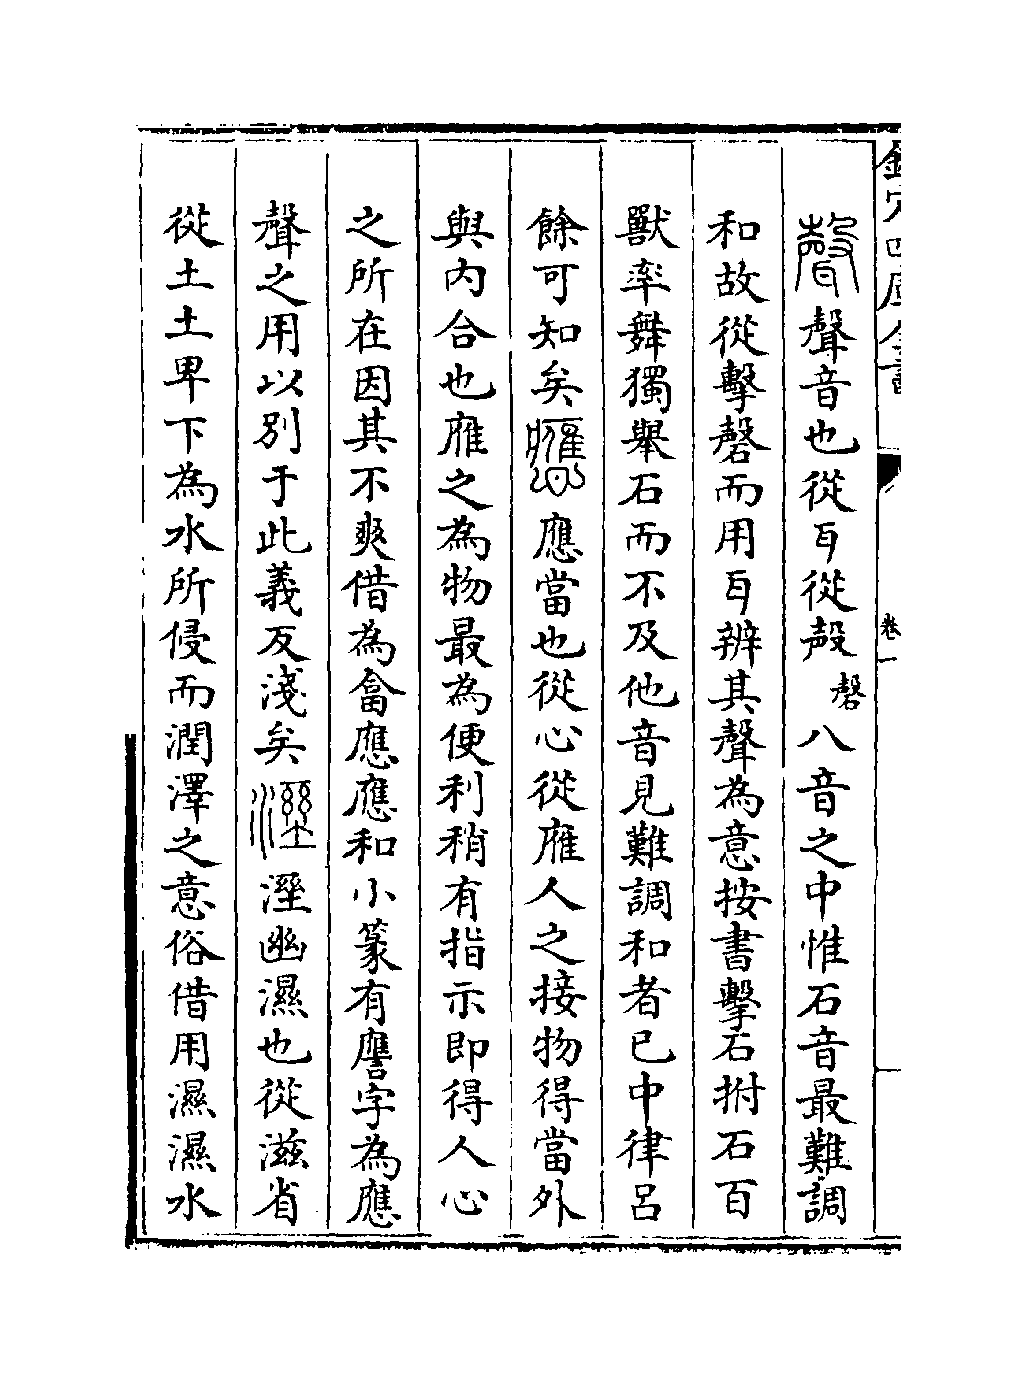 欽定四庫全書
卷一
聲聲音也從耳從殸磬八音之中惟石音最難調
和故從擊磬而用耳辨其聲為意按書擊石拊石百
獸率舞獨舉石而不及他音見難調和者已中律呂
餘可知矣應應當也從心從䧹人之接物得當外
與内合也䧹之為物最為便利稍有指示即得人心
之所在因其不爽借為畣應應和小篆有譍字為應
聲之用以别于此義反淺矣溼溼幽濕也從滋省
從土土卑下為水所侵而潤澤之意俗借用濕濕水